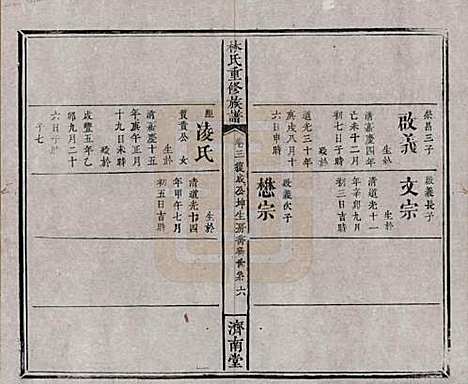 榮昌三子
啟義
生於
清嘉慶四年
己未十二月
初七日子時
歿於
道光三十年
庚戌八月十
六日申時
啟義長子
文宗
生於
清道光十一
年辛卯九月
初三日吉時
啟義次子
懋宗
林氏重修族譜
卷三 成公坤生房 六
濟南堂
凌氏
貴公
女
生於
清嘉慶十五
年庚午正月
十九日未時
歿於
咸豐五年乙
卯九月二十
六日子時
生於
清道光十四
年甲午七月
初五日吉時